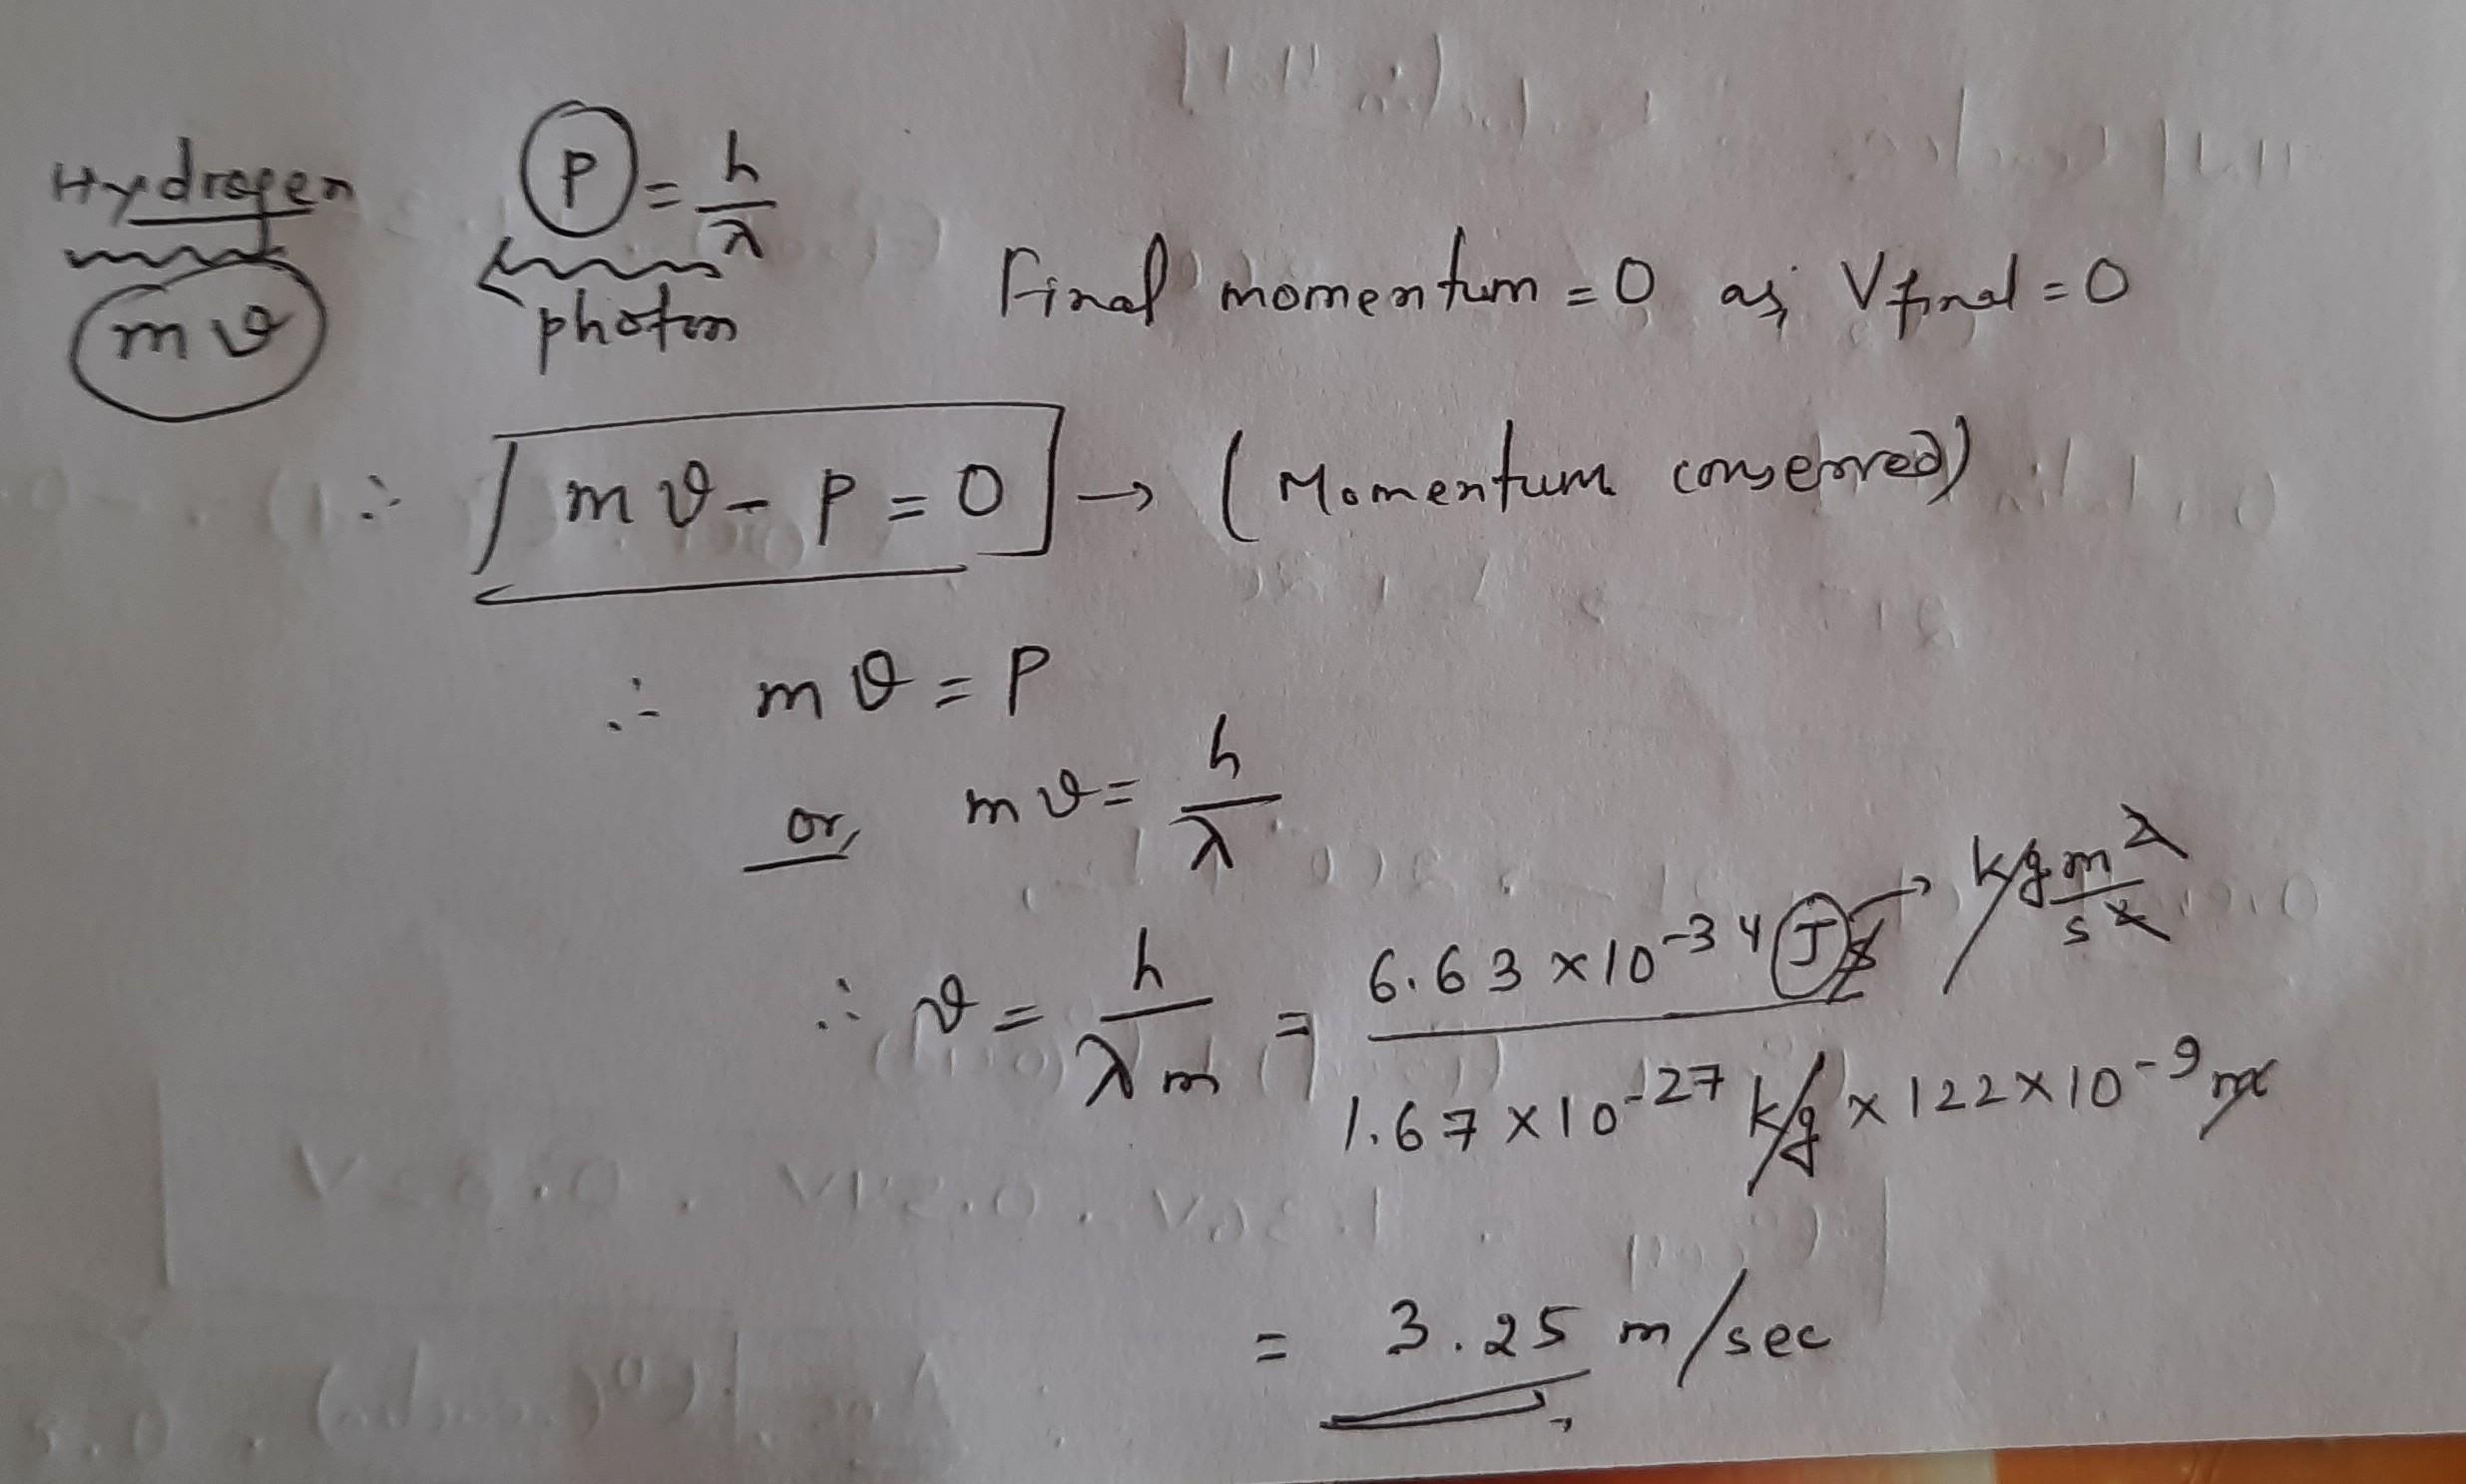 Hydrogen
mv
P = h/λ
photon
Final momentum = 0 as, V final = 0
∴ mv - P = 0 → (Momentum conserved)
∴ mv = P
or, mv = h/λ
∴ v = h/λm = 6.63 × 10⁻³⁴ Js / 1.67 × 10⁻²⁷ kg × 122 × 10⁻⁹ m
→ kg m²/s²
= 3.25 m/sec